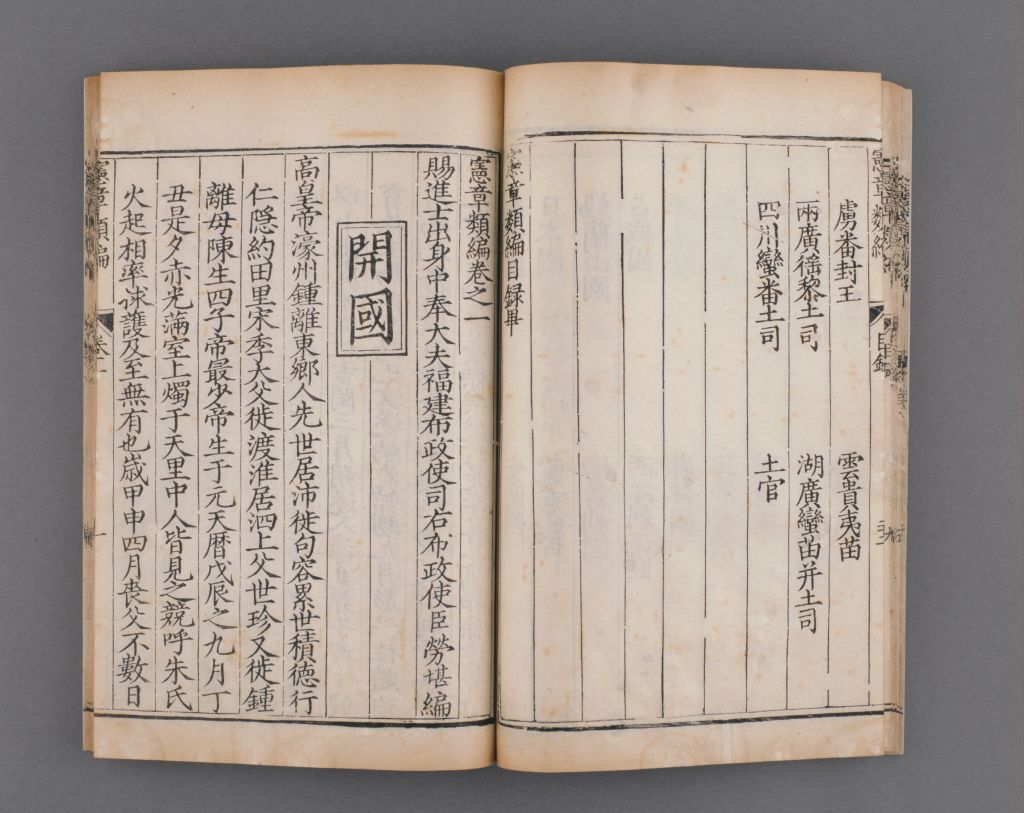 虜番封王　雲貴夷苗
兩廣徭黎土司　湖廣蠻苗并土司
四川蠻番土司　土官
憲章類編目録畢
憲章類編卷之一
賜進士出身中奉大夫福建布政使司右布政使臣勞堪編
開國
高皇帝濠州鍾離東鄉人先世居沛徙句容累世積德行
仁隠約田里宋季大父徙渡淮居泗上父世珍又徙鍾
離母陳生四子帝最少帝生于元天曆戊辰之九月丁
丑是夕赤光滿室上燭于天里中人皆見之競呼朱氏
火起相率救護及至無有也歲甲申四月喪父不數日
憲章類編
卷一
一